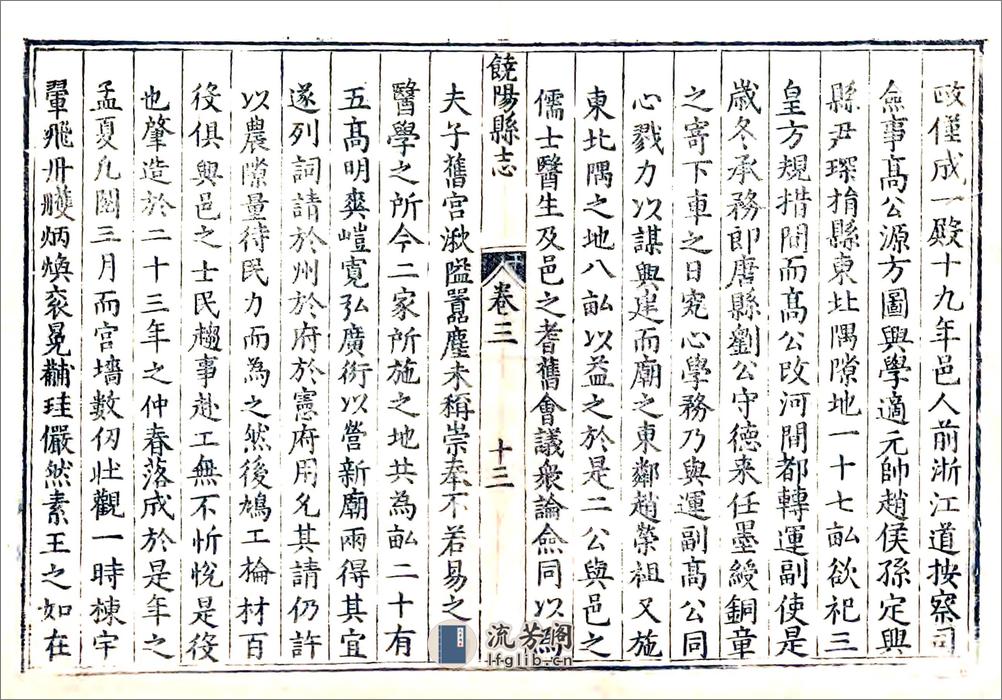 政僅成一殿十九年邑人前浙江道按察司
僉事髙公源方圖興學適元帥趙侯孫定興
縣尹琛捐縣東北隅隙地一十七畝欲祀三
皇方規措間而髙公改河間都轉運副使是
歲冬承務郎唐縣劉公守德来任墨綬銅章
之寄下車之日究心學務乃與運副髙公同
心戮力以謀興建而廟之東鄰趙榮祖又施
東北隅之地八畝以益之於是二公與邑之
儒士醫生及邑之耆舊會議衆論僉同以爲
饒陽縣志
卷三
十三
夫子舊宫湫隘囂塵未稱崇奉不若易之
醫學之所今二家所施之地共為畝二十有
五髙明爽嵦寛弘廣衍以營新廟兩得其宜
遂列詞請於州於府於憲府用允其請仍許
以農隙量待民力而為之然後鳩工掄材百
役俱興邑之士民趨事赴工無不忻悅是役
也肇造於二十三年之仲春落成於是年之
孟夏凢圜三月而宫墻數仞壯觀一時棟宇
翬飛丹雘炳煥衮冕黼珪儼然素王之如在
流芳閣
lfglib.cn